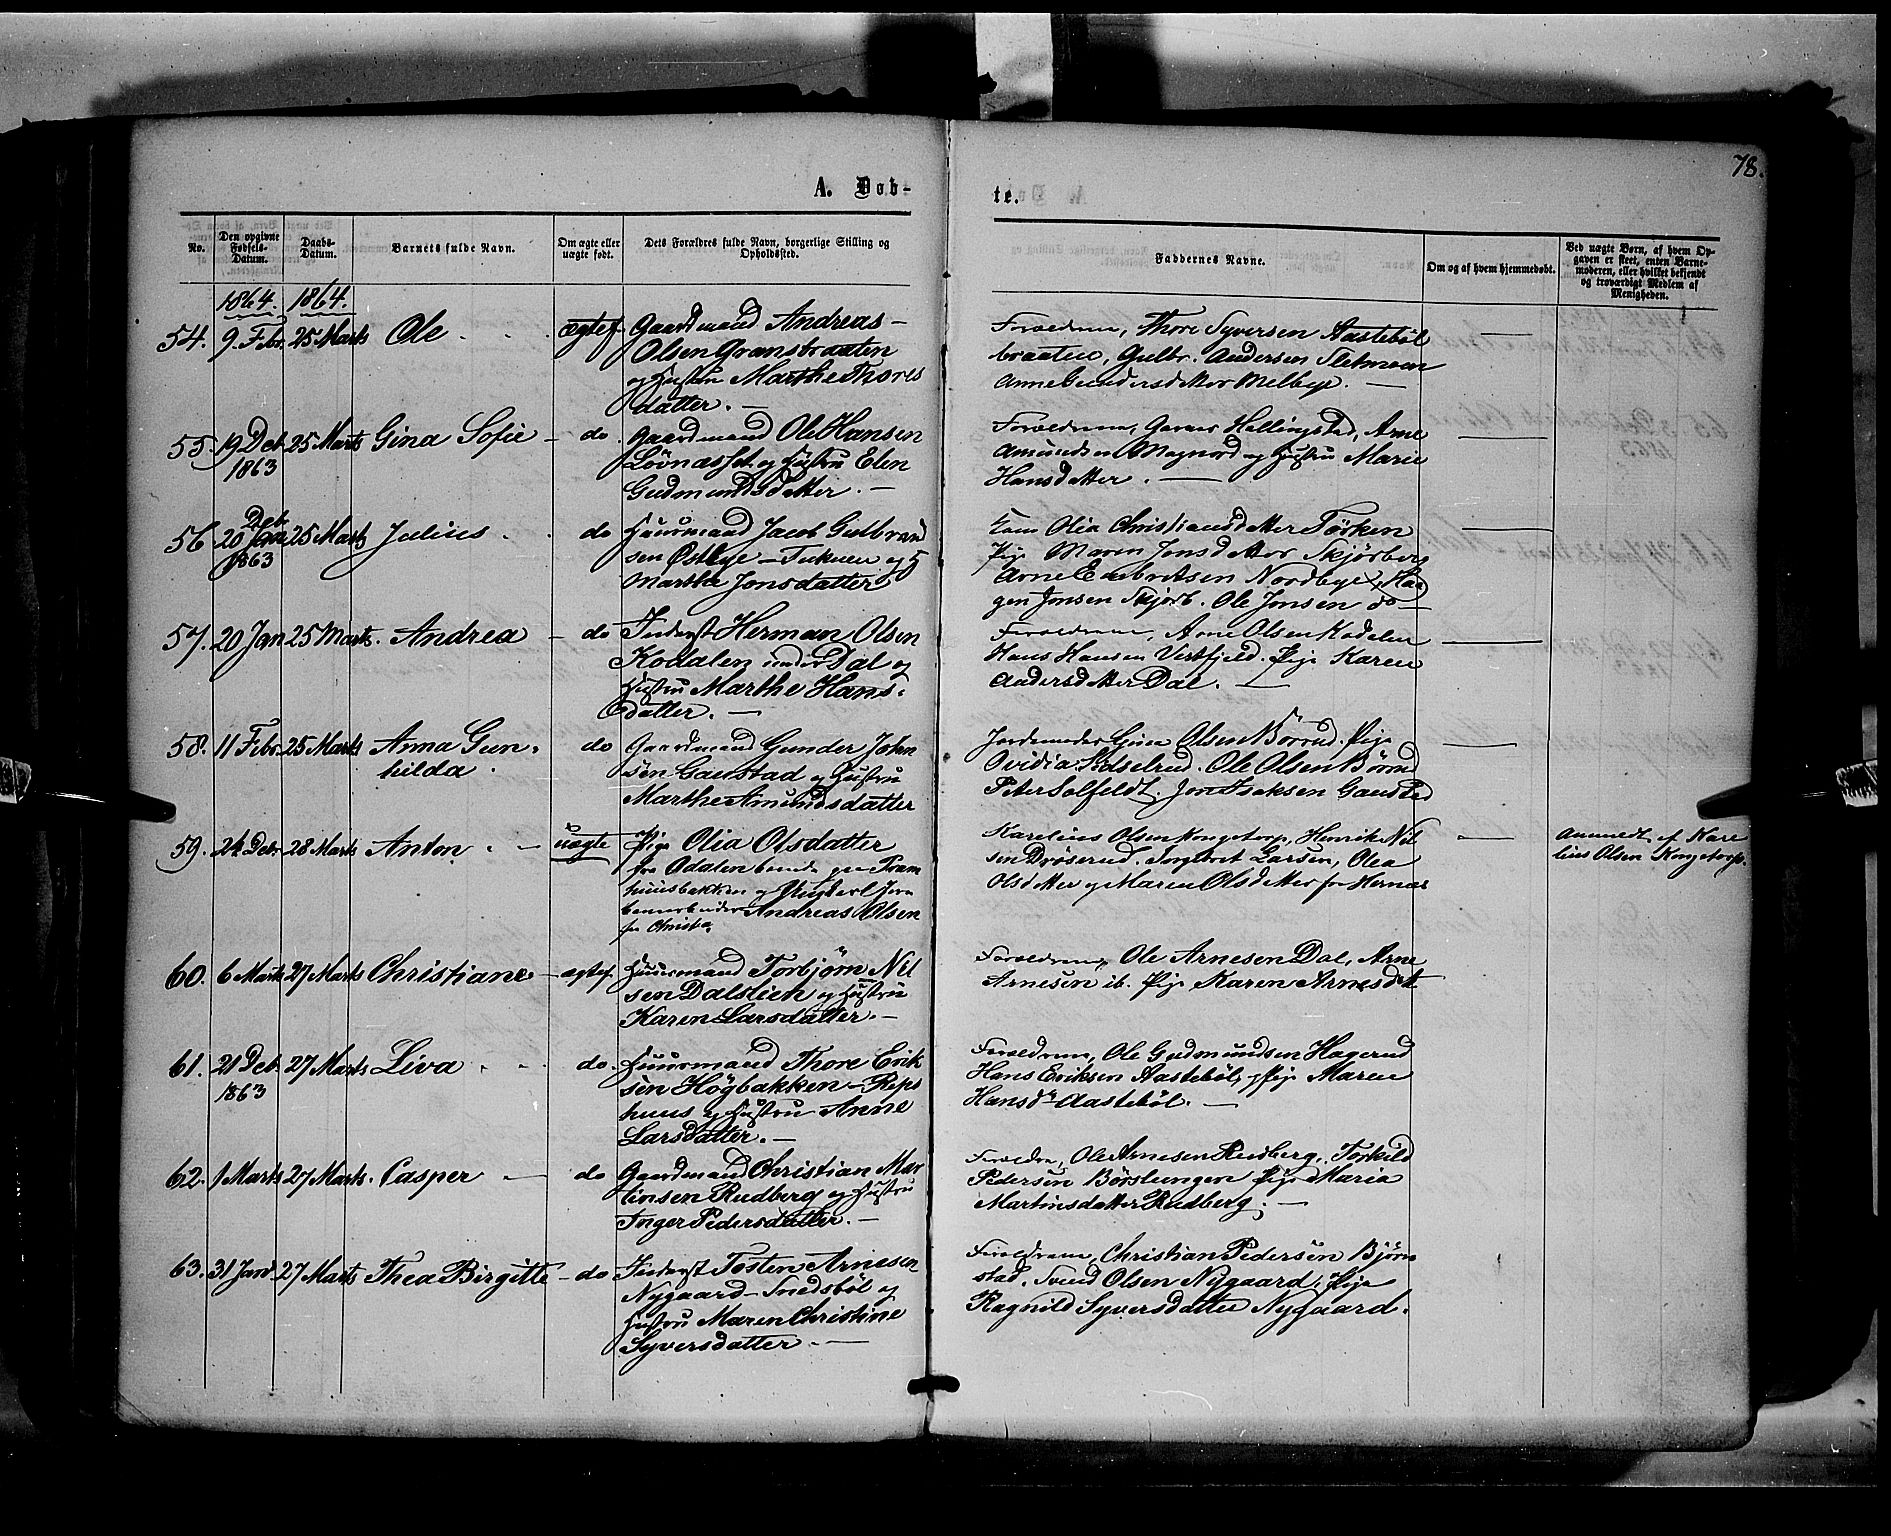 78.
A. Døb-
te.
No.
Den opgivne Fødsels-Datum.
Daabs-Datum.
Barnets fulde Navn.
Om ægte eller uægte født.
Dets Forældres fulde Navn, borgerlige Stilling og Opholdssted.
Faddernes Navne.
Om og af hvem hjemmedøbt.
Ved uægte Børn, af hvem Opgaven er skeet, enten Barnemoderen, eller hvilket bekjendt og troværdigt Medlem af Menigheden.
1864. 1864.
54. 9. Febr. 25 Marts Ole ægtef. Gaardmand Andreas
Olsen Granbraaten
og Hustru Marthe Thores
datter.
Forældrene, Thore Syversen Aastebøl
braaten, Gulbr. Andersen Sletmoen
Anne Gundersdatter Melbye.
55. 19 Deb. 25 Marts Gina Sofie do. Gaardmand Ole Hansen
1863
Løvnæsset og Hustru Elen
Gudmundsdatter.
Forældrene, Hellingstad, Arne
Amundsen Magnord og Hustru Marie
Hansdatter.
56 20 Deb 25 Marts Julius do Huusmand Jacob Gulbrand
1863
sen Østbye og
Marthe Jonsdatter
Olia Christiansdatter Tørken
Pige Maren Jonsdatter Skjørberg
Arne Embretsen Nordbye, Haa
gen Jonsen Skjørb. Ole Jonsen do
57. 20 Jan 25 Marts. Andrea do Inderst Herman Olsen
Kodalen under Dal og
Hustru Marthe Hans-
datter.
Forældrene, Arne Olsen Kodalen
Hans Hansen Vestfjeld. Pige Karen
Andersdatter Dal.
58. 11 Febr. 25 Marts Anna Gun- do Gaardmand Gunder John
hilda
sen Gaustad og Hustru
Marthe Amundsdatter
Jordemoder Gina Olsen Børrud. Pige
Ovidia Ole Olsen Børrud
Peter Solfeldt. Jon Isaksen Gaustad
59. 24 Deb. 28 Marts Anton uægte Pige Olia Olsdatter
fra Odalen boende paa Fram
huusbakken og Ungkarl Jern
banearbeider Andreas Olsen
fra Christia.
Karelius Olsen Kongetorp, Henrik Nil
sen Drøserud. Larsen, Olea
Olsdatter og Maren Olsdatter fra Hernæs
Anmeldt af Kare
lius Olsen Kongetorp.
60. 6 Marts 27 Marts Christiane ægtef. Huusmand Torbjørn Nil
sen Dalstien og Hustru
Karen Larsdatter.
Forældrene, Ole Arnesen Dal, Arne
Arnesen ib. Pige Karen Arnesdt
61. 21 Deb. 27 Marts Liva do. Huusmand Thore Erik
1863
sen Høgbakken Reps
huus og Hustru Anne
Larsdatter.
Forældrene, Ole Gudmundsen Hagerud
Hans Eriksen Aastebøl, Pige Maren
Hansd Aastebøl.
62. 1 Marts 27 Marts. Casper do Gaardmand Christian Mar
tinsen Rudberg og Hustru
Inger Pedersdatter.
Forældre, Ole Arnesen Rudberg, Torkild
Pedersen Børslungen Pige Maria
Martinsdatter Rudberg.
63. 31 Jan 27 Marts Thea Birgitte do Inderst Tosten Arnesen
Nygaard Snedsbøl og
Hustru Maren Christine
Syversdatter.
Forældrene, Christian Pedersen Bjørn
stad. Svend Olsen Nygaard, Pige
Ragnild Syversdatter Nygaard.